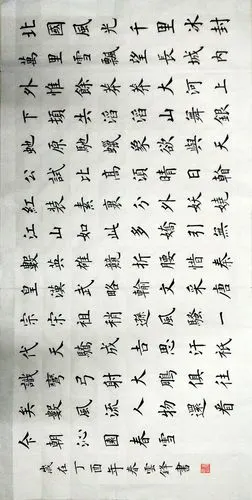 北國風光千里冰封
萬里雪飄望長城内
外惟餘莽莽大河上
下頓失滔滔山舞銀
蛇原馳蠟象欲與天
公試比高須晴日看
紅裝素裹分外妖嬈
江山如此多嬌引無
數英雄競折腰惜秦
皇漢武略輸文采唐
宗宋祖稍遜風騷一
代天驕成吉思汗祇
識彎弓射大鵰俱往
矣數風流人物還看
今朝沁園春雪
歲在丁酉年春雲鋒書